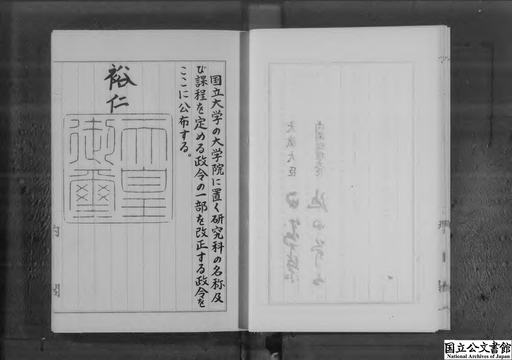 国立大学の大学院に置く研究科の名称及
び課程を定める政令の一部を改正する政令を
ここに公布する。
裕仁
天皇
御璽
内閣
大蔵大臣
国立公文書館
National Archives of Japan